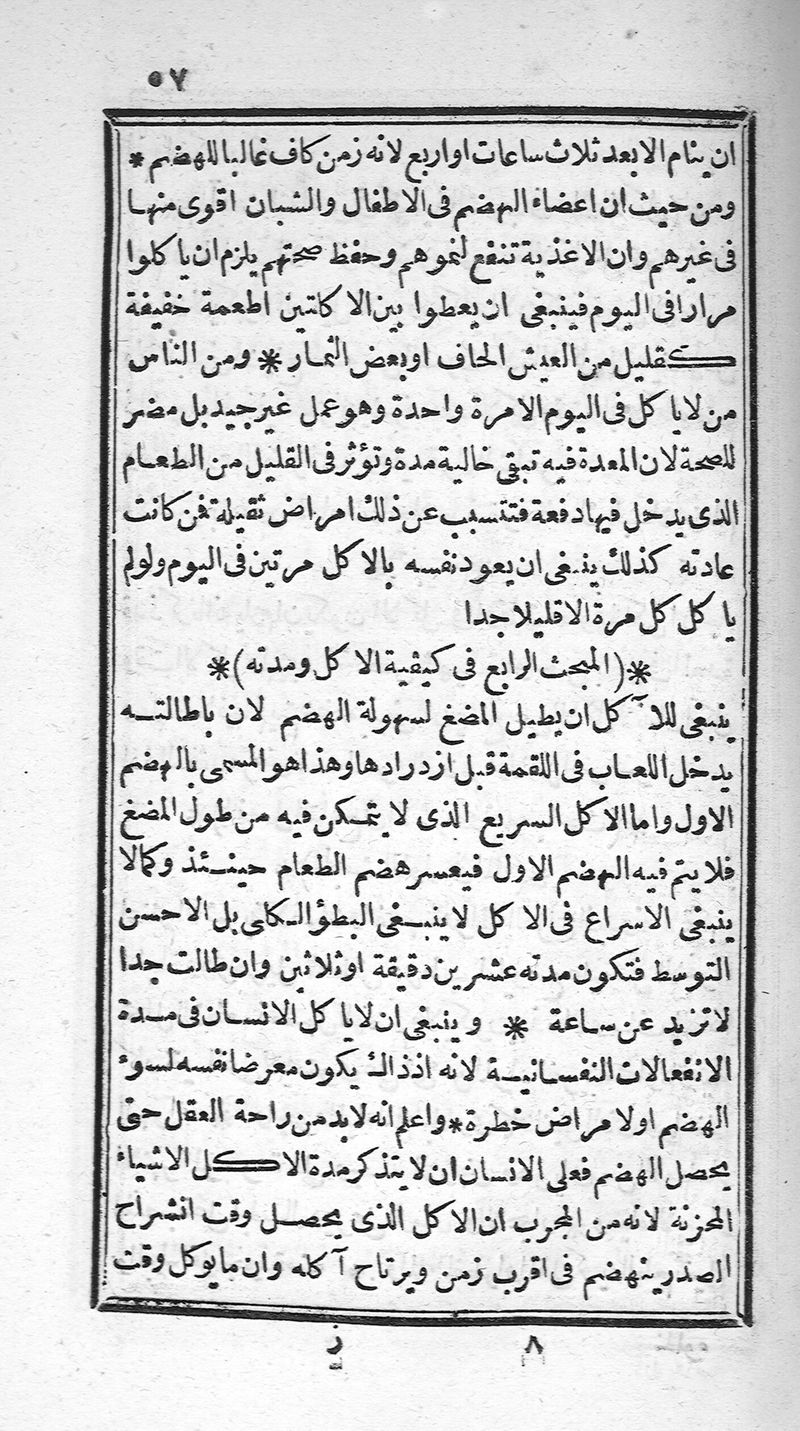 ٥٧
ان ينام الا بعد ثلاث ساعات او اربع لانه زمن كاف غالبا للهضم *
ومن حيث ان اعضاء الهضم فى الاطفال والشبان اقوى منها
فى غيرهم وان الاغذية تنفع لنموهم وحفظ صحتهم يلزم ان ياكلوا
مرارا فى اليوم فينبغى ان يعطوا بين الاكلتين اطعمة خفيفة
كقليل من العيش الحاف او بعض الثمار * ومن الناس
من لا ياكل فى اليوم الا مرة واحدة وهو عمل غير جيد بل مضر
للصحة لان المعدة فيه تبقى خالية مدة وتؤثر فى القليل من الطعام
الذى يدخل فيها دفعة فتتسبب عن ذلك امراض ثقيلة فمن كانت
عادته كذلك ينبغى ان يعود نفسه بالاكل مرتين فى اليوم ولو لم
ياكل كل مرة الا قليلا جدا
*(المبحث الرابع فى كيفية الاكل ومدته)*
ينبغى للآكل ان يطيل المضغ لسهولة الهضم لان باطالته
يدخل اللعاب فى اللقمة قبل ازدرادها وهذا هو المسمى بالهضم
الاول واما الاكل السريع الذى لا يتمكن فيه من طول المضغ
فلا يتم فيه الهضم الاول فيعسر هضم الطعام حينئذ وكما لا
ينبغى الاسراع فى الاكل لا ينبغى البطؤ الكلى بل الاحسن
التوسط فتكون مدته عشرين دقيقة او ثلاثين وان طالت جدا
لا تزيد عن ساعة * وينبغى ان لا ياكل الانسان فى مدة
الانفعالات النفسانية لانه اذ ذاك يكون معرضا نفسه لسوء
الهضم او لامراض خطرة * واعلم انه لابد من راحة العقل حتى
يحصل الهضم فعلى الانسان ان لا يتذكر مدة الاكل الاشياء
المحزنة لانه من المجرب ان الاكل الذى يحصل وقت انشراح
الصدر ينهضم فى اقرب زمن ويرتاح آكله وان ما يوكل وقت
٨ ز